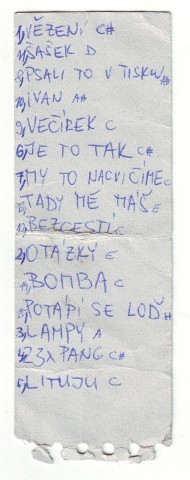 VĚZENÍ C#
ŠAŠEK D
PSALI TO V TISKU
IVAN A#
9, VEČÍREK C
6, JE TO TAK C#
7, MY TO NACVIČÍME C
TADY MĚ MÁŠ E
BEZCESTÍ C
2, OTÁZKY E
BOMBA C
POTÁPÍ SE LOĎ
3, LAMPY A
4, 23X PANG C#
5, LITUJU C